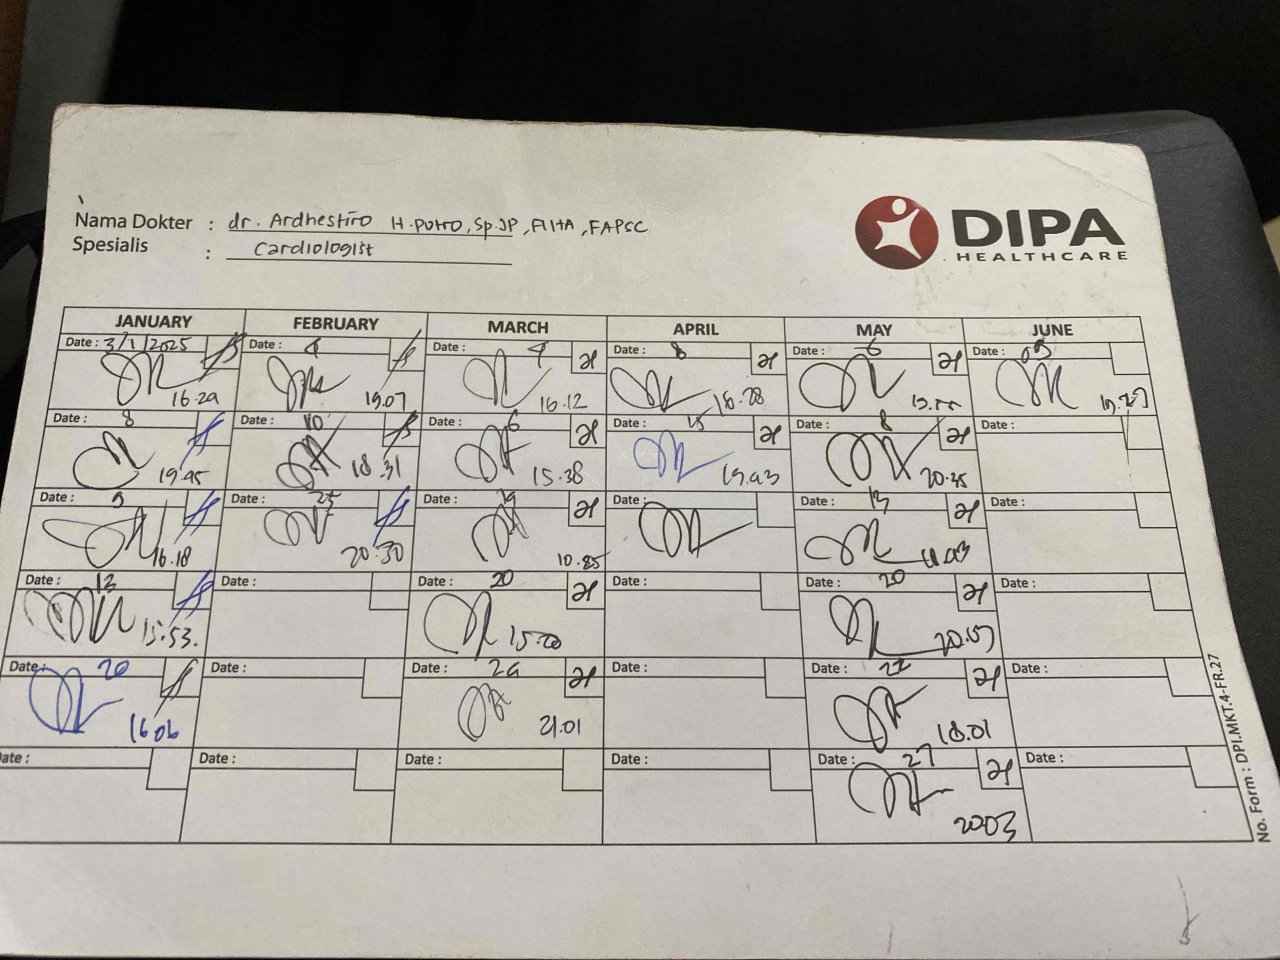 Nama Dokter : dr. Ardhestiro H. putro, Sp.JP, FIHA, FAPSC
Spesialis : Cardiologist
DIPA
HEALTHCARE
JANUARY FEBRUARY MARCH APRIL MAY JUNE
Date : 3/1/2025 Date : 4 Date : 4 Date : 8 Date : 6 Date : 03
16.29 19.07 16.12 18.28
Date : 8 Date : 10 Date : 6 Date : 15 Date : 8 Date :
19.45 18.31 15.38 19.43 20.35
Date : 9 Date : 25 Date : 19 Date : Date : 13 Date :
16.18 20.30 10.45
Date : 13 Date : Date : 20 Date : Date : 20 Date :
15.53. 15.20 20.57
Date : 20 Date : Date : 24 Date : Date : 22 Date :
16.06 21.01 18.01
Date : Date : Date : Date : Date : 27 Date :
2003
No. Form : DPI.MKT.4-FR.27